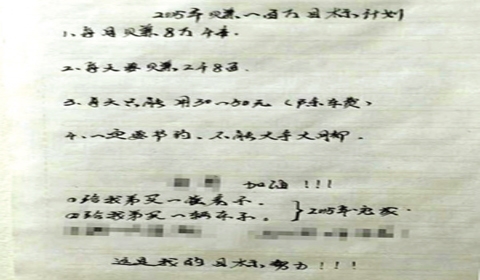 2005年赚一百万目标计划
1、每月赚8万
2、每天要赚2千8百.
3、每天只能用30～50元（除车费）
4、一定要节约，不能大手大脚.
加油!!!
①给我弟买一套房子.
②给我弟买一辆车子. }2005年完成
这是我的目标努力!!!